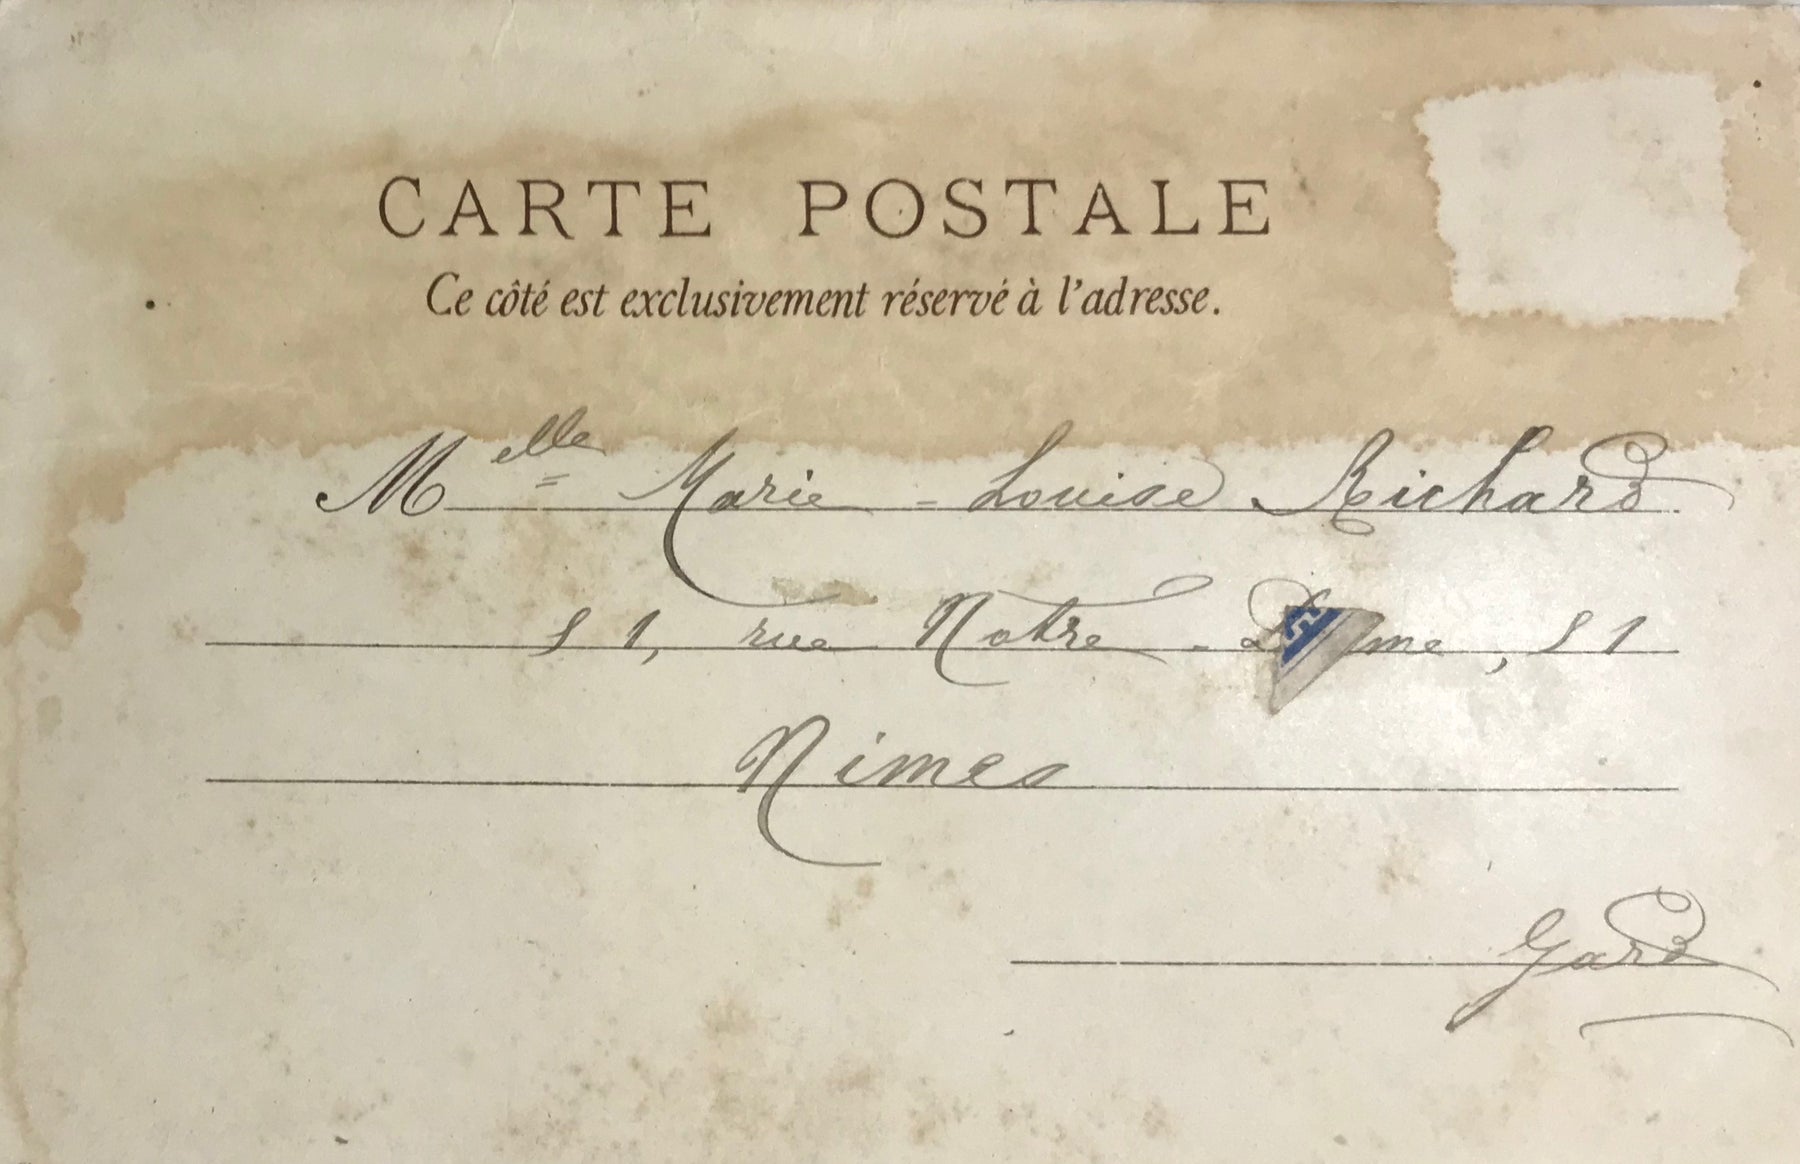 CARTE POSTALE
Ce côté est exclusivement réservé à l'adresse.
Melle Marie-Louise Richard
51, rue Notre-Dame, 51
Nimes
Gard